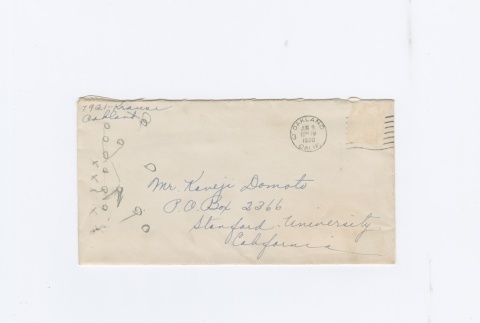 7921 Krause
Oakland
OAKLAND
CALIF.
Mr. Kaneji Domoto
P.O. Box 2366
Stanford University
California